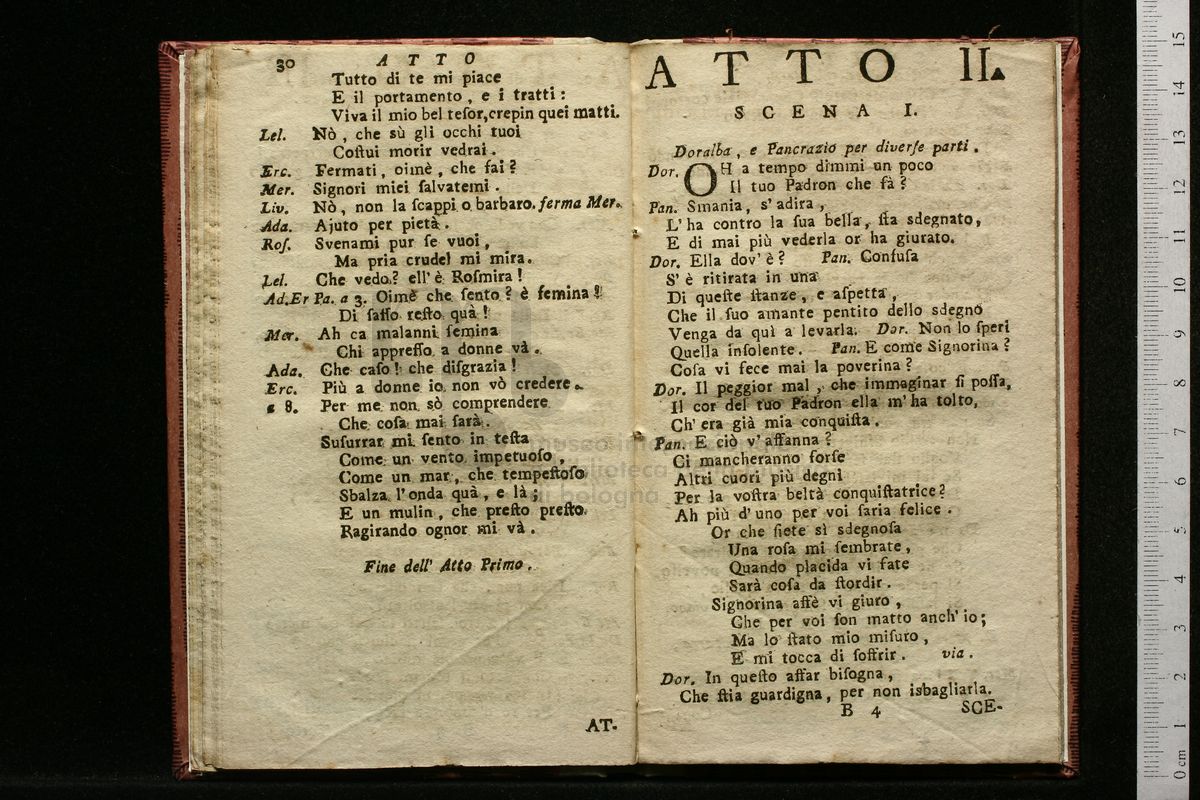 30 ATTO
Tutto di te mi piace
E il portamento, e i tratti:
Viva il mio bel teſor, crepin quei matti.
Lel. Nò, che sù gli occhi tuoi
Coſtui morir vedrai.
Erc. Fermati, oimè, che fai?
Mer. Signori miei ſalvatemi.
Liv. Nò, non la ſcappi o barbaro. ferma Mer.
Ada. Ajuto per pietà.
Roſ. Svenami pur ſe vuoi,
Ma pria crudel mi mira.
Lel. Che vedo? ell' è Roſmira!
Ad. Er Pa. a 3. Oimè che ſento? è femina!
Di ſaſſo reſto quà!
Mer. Ah ca malanni ſemina
Chi appreſſo a donne và.
Ada. Che caſo! che diſgrazia!
Erc. Più a donne io non vò credere.
a 8. Per me non sò comprendere
Che coſa mai ſarà.
Suſurrar mi ſento in teſta
Come un vento impetuoſo,
Come un mar, che tempeſtoſo
Sbalza l'onda quà, e là;
E un mulin, che preſto preſto
Ragirando ognor mi và.
Fine dell' Atto Primo.
AT-
ATTO II.
SCENA I.
Doralba, e Pancrazio per diverſe parti.
Dor. OH a tempo dimmi un poco
Il tuo Padron che fà?
Pan. Smania, s'adira,
L' ha contro la ſua bella, ſta sdegnato,
E di mai più vederla or ha giurato.
Dor. Ella dov' è? Pan. Confuſa
S' è ritirata in una
Di queſte ſtanze, e aſpetta,
Che il ſuo amante pentito dello sdegno
Venga da quì a levarla. Dor. Non lo ſperi
Quella inſolente. Pan. E come Signorina?
Coſa vi fece mai la poverina?
Dor. Il peggior mal, che immaginar ſi poſſa,
Il cor del tuo Padron ella m' ha tolto,
Ch' era già mia conquiſta.
Pan. E ciò v' affanna?
Ci mancheranno forſe
Altri cuori più degni
Per la voſtra beltà conquiſtatrice?
Ah più d' uno per voi ſaria felice.
Or che ſiete sì sdegnoſa
Una roſa mi ſembrate,
Quando placida vi fate
Sarà coſa da ſtordir.
Signorina affè vi giuro,
Che per voi ſon matto anch' io;
Ma lo ſtato mio miſuro,
E mi tocca di ſoffrir. via.
Dor. In queſto affar biſogna,
Che ſtia guardigna, per non isbagliarla.
B 4 SCE-
museo
biblioteca
di bologna
15
14
13
12
11
10
9
8
7
6
5
4
3
2
1
0 cm